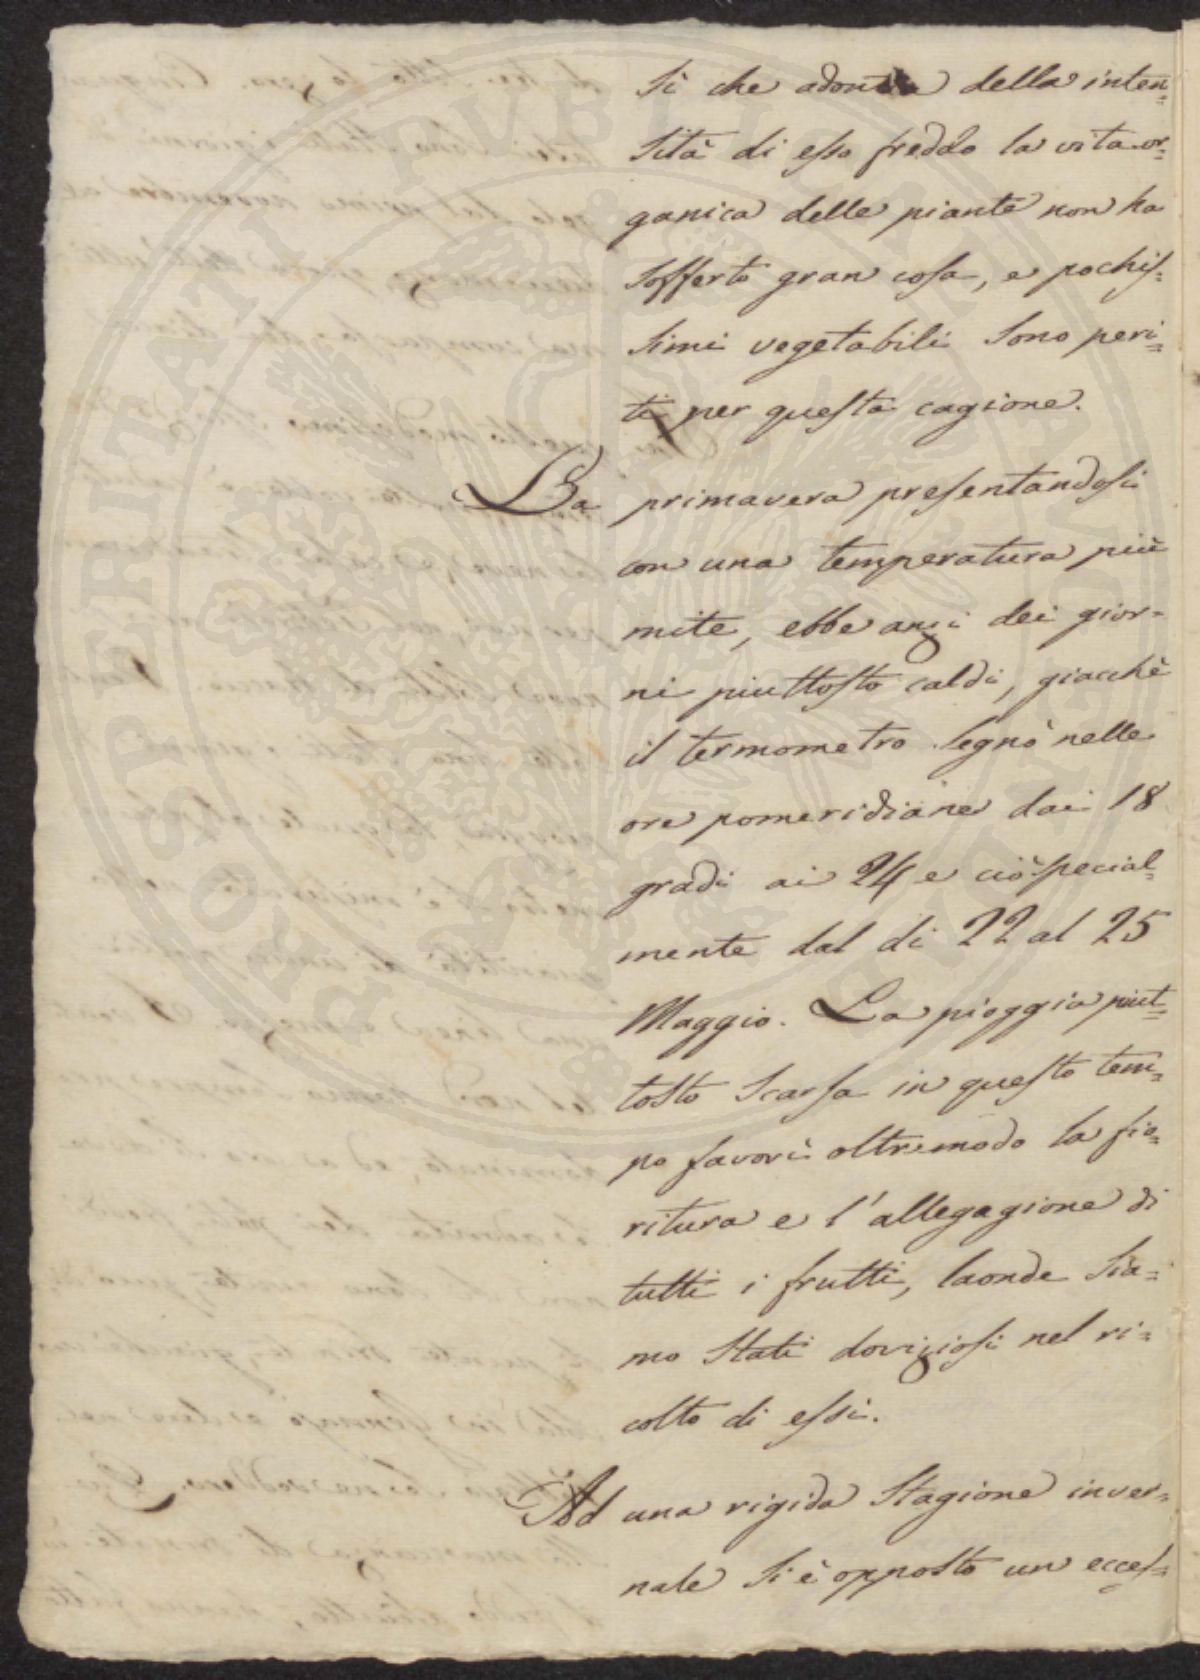 sì che adonta della inten=
sità di esso freddo la vita or=
ganica delle piante non ha
sofferto gran cosa, e pochis=
simi vegetabili sono peri=
ti per questa cagione.
La primavera presentandosi
con una temperatura più
mite, ebbe anzi dei gior-
ni piuttosto caldi, giacchè
il termometro segnò nelle
ore pomeridiane dai 18
gradi ai 24 e ciò special=
mente dal dì 22 al 25
Maggio. La pioggia piut=
tosto scarsa in questo tem=
po favorì oltremodo la fio=
ritura e l'allegagione di
tutti i frutti, laonde sia=
mo stati doviziosi nel ri=
colto di essi.
Ad una rigida stagione inver=
nale si è opposto un ecces=
PROSPERITATI PVBLICAE AVGENDAE